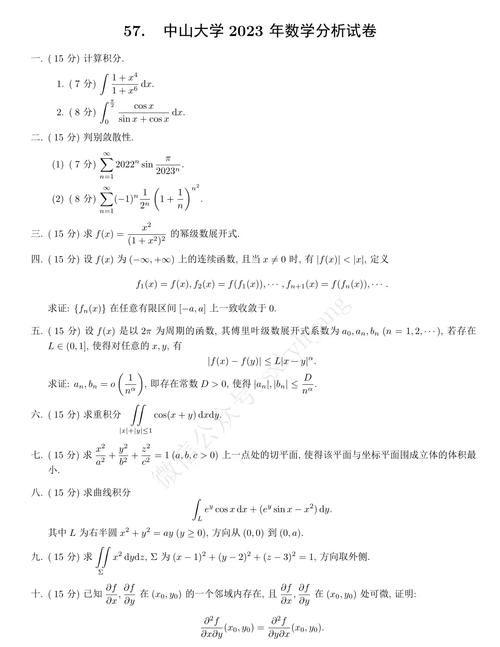 57. 中山大学 2023 年数学分析试卷
一. ( 15 分) 计算积分.
1. ( 7 分) ∫ (1 + x⁴)/(1 + x⁶) dx.
2. ( 8 分) ∫₀^(π/2) cos x/(sin x + cos x) dx.
二. ( 15 分) 判别敛散性.
(1) ( 7 分) ∑_{n=1}^{∞} 2022ⁿ sin π/2023ⁿ.
(2) ( 8 分) ∑_{n=1}^{∞} (−1)ⁿ 1/2ⁿ (1 + 1/n)^{n²}.
三. ( 15 分) 求 f(x) = x²/(1 + x²)² 的幂级数展开式.
四. ( 15 分) 设 f(x) 为 (−∞, +∞) 上的连续函数, 且当 x ≠ 0 时, 有 |f(x)| < |x|, 定义
f₁(x) = f(x), f₂(x) = f(f₁(x)), ··· , fₙ₊₁(x) = f(fₙ(x)), ··· .
求证: {fₙ(x)} 在任意有限区间 [−a, a] 上一致收敛于 0.
五. ( 15 分) 设 f(x) 是以 2π 为周期的函数, 其傅里叶级数展开式系数为 a₀, aₙ, bₙ (n = 1, 2, ···), 若存在
L ∈ (0, 1], 使得对任意的 x, y, 有
|f(x) − f(y)| ≤ L|x − y|^α.
求证: aₙ, bₙ = o(1/n^α), 即存在常数 D > 0, 使得 |aₙ|, |bₙ| ≤ D/n^α.
六. ( 15 分) 求重积分 ∬_{|x|+|y|≤1} cos(x + y) dxdy.
七. ( 15 分) 求 x²/a² + y²/b² + z²/c² = 1 (a, b, c > 0) 上一点处的切平面, 使得该平面与坐标平面围成立体的体积最
小.
八. ( 15 分) 求曲线积分
∫_L e^y cos x dx + (e^y sin x − x²) dy.
其中 L 为右半圆 x² + y² = ay (y ≥ 0), 方向从 (0, 0) 到 (0, a).
九. ( 15 分) 求 ∬_Σ x² dydz, Σ 为 (x − 1)² + (y − 2)² + (z − 3)² = 1, 方向取外侧.
十. ( 15 分) 已知 ∂f/∂x, ∂f/∂y 在 (x₀, y₀) 的一个邻域内存在, 且 ∂f/∂x, ∂f/∂y 在 (x₀, y₀) 处可微, 证明:
∂²f/∂x∂y (x₀, y₀) = ∂²f/∂y∂x (x₀, y₀).